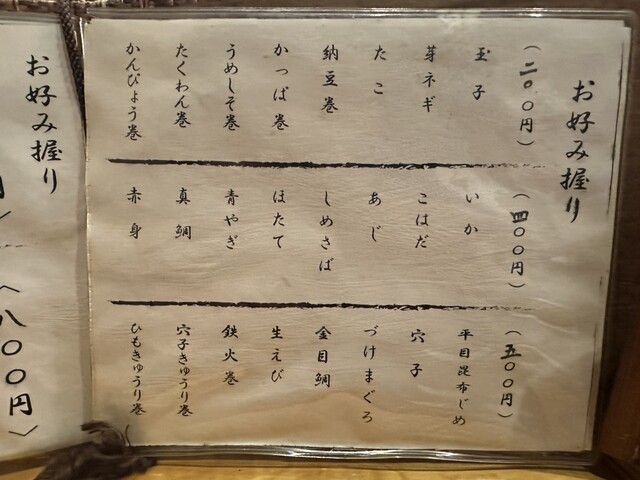 お好み握り
（二〇〇円）
玉子
芽ネギ
たこ
納豆巻
かっぱ巻
うめしそ巻
たくわん巻
かんぴょう巻
（四〇〇円）
いか
こはだ
あじ
しめさば
ほたて
青やぎ
真鯛
赤身
（五〇〇円）
平目昆布じめ
穴子
づけまぐろ
金目鯛
生えび
鉄火巻
穴子きゅうり巻
ひもきゅうり巻
お好み握り
〈八〇〇円〉